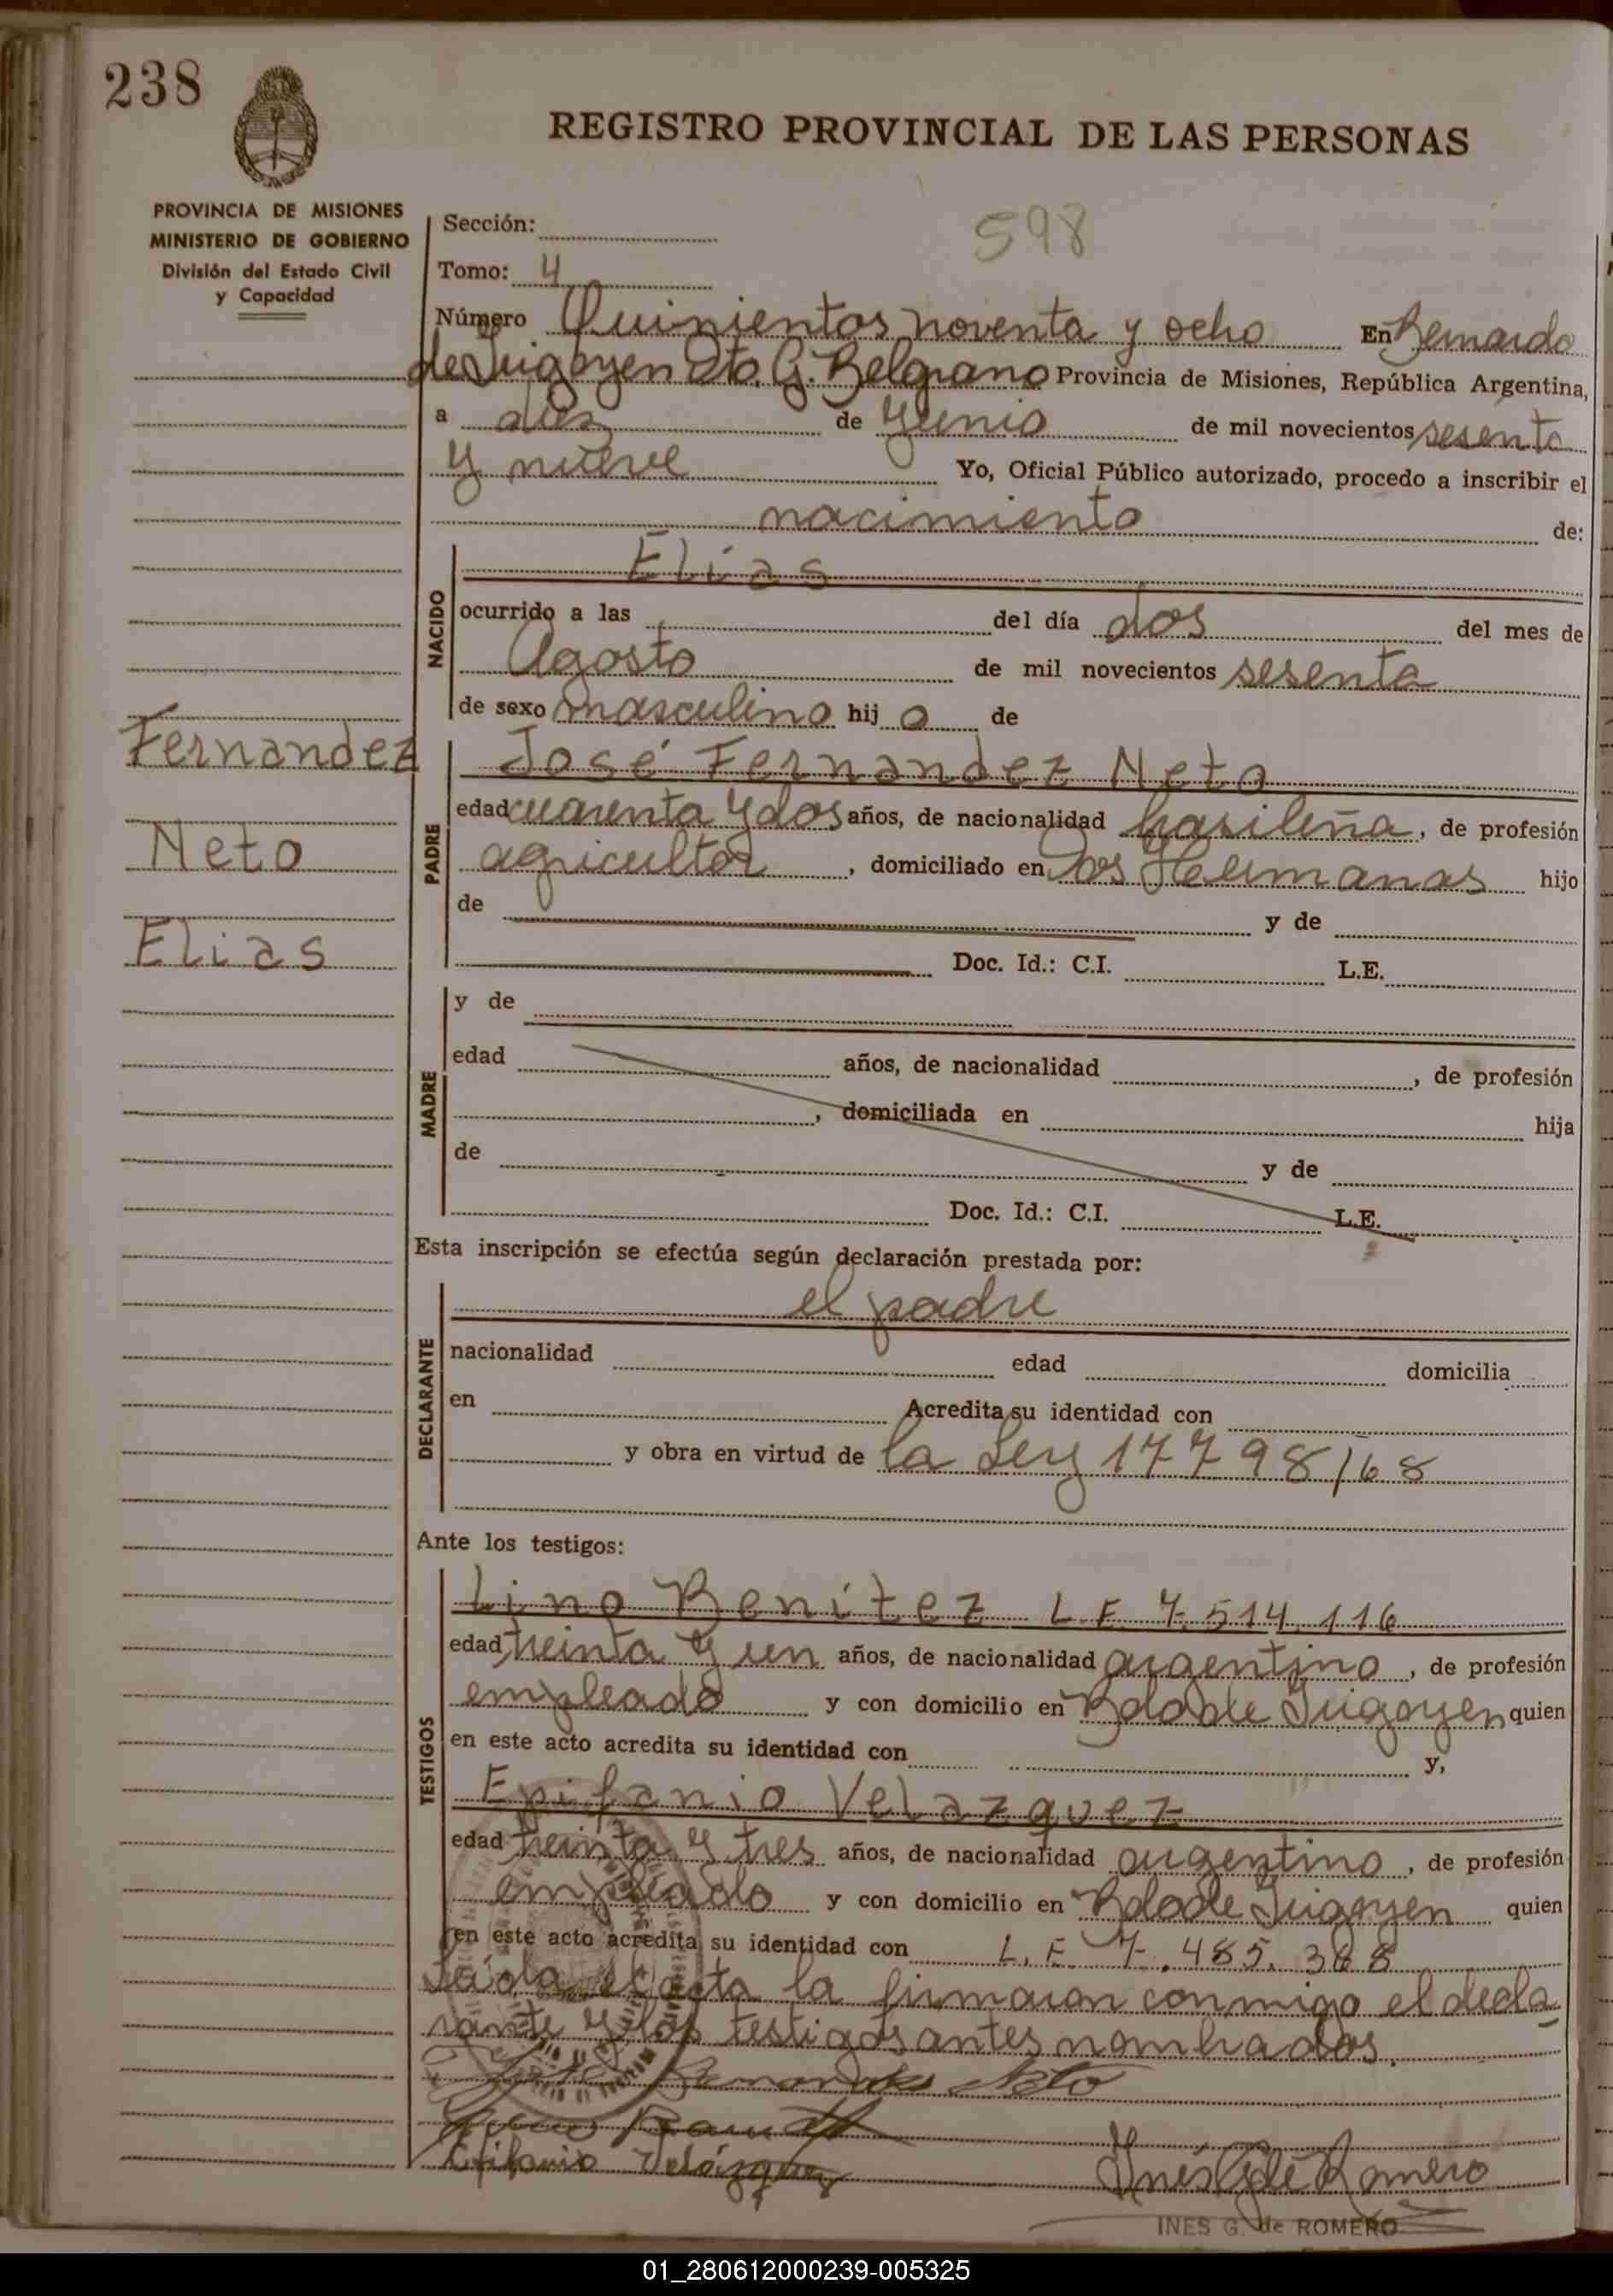 238
REGISTRO PROVINCIAL DE LAS PERSONAS
PROVINCIA DE MISIONES
MINISTERIO DE GOBIERNO
División del Estado Civil
y Capacidad
Sección:
598
Tomo: 4
Número Quinientos noventa y ocho En Bernardo
de Irigoyen Dto. G. Belgrano Provincia de Misiones, República Argentina,
a diez de Junio de mil novecientos sesenta
y nueve Yo, Oficial Público autorizado, procedo a inscribir el
nacimiento de:
NACIDO
Elías
ocurrido a las del día dos del mes de
Agosto de mil novecientos sesenta
de sexo masculino hij o de
Fernandez
Neto
Elias
PADRE
José Fernandez Neto
edad cuarenta y dos años, de nacionalidad brasileña, de profesión
agricultor, domiciliado en Dos Hermanas hijo
de y de
Doc. Id.: C.I. L.E.
MADRE
y de
edad años, de nacionalidad , de profesión
, domiciliada en hija
de y de
Doc. Id.: C.I. L.E.
Esta inscripción se efectúa según declaración prestada por:
DECLARANTE
el padre
nacionalidad edad domicilia
en Acredita su identidad con
y obra en virtud de la Ley 17798/68
Ante los testigos:
TESTIGOS
Lino Benítez L.E. 7.514.116
edad treinta y un años, de nacionalidad argentino, de profesión
empleado y con domicilio en Bdo de Irigoyen quien
en este acto acredita su identidad con y,
Epifanio Velazquez
edad treinta y tres años, de nacionalidad argentino, de profesión
empleado y con domicilio en Bdo de Irigoyen quien
en este acto acredita su identidad con L.E. 7.485.368
Leída el acta la firmaron conmigo el decla
rante y los testigos antes nombrados.
Fernandes Neto
Epifanio Velázquez
Inés G de Romero
INES G. de ROMERO
01_280612000239-005325